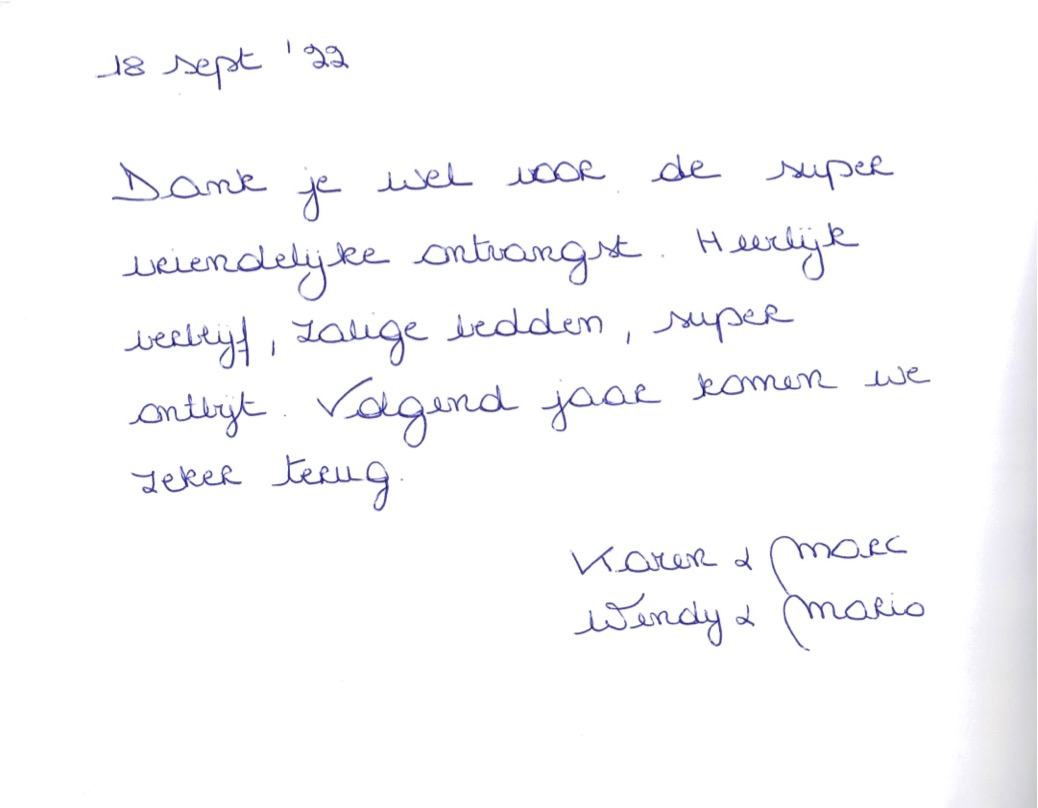 18 sept '22
Dank je wel voor de super
vriendelijke ontvangst. Heerlijk
verblijf, zalige bedden, super
ontbijt. Volgend jaar komen we
zeker terug.
Karen & Marc
Wendy & Mario